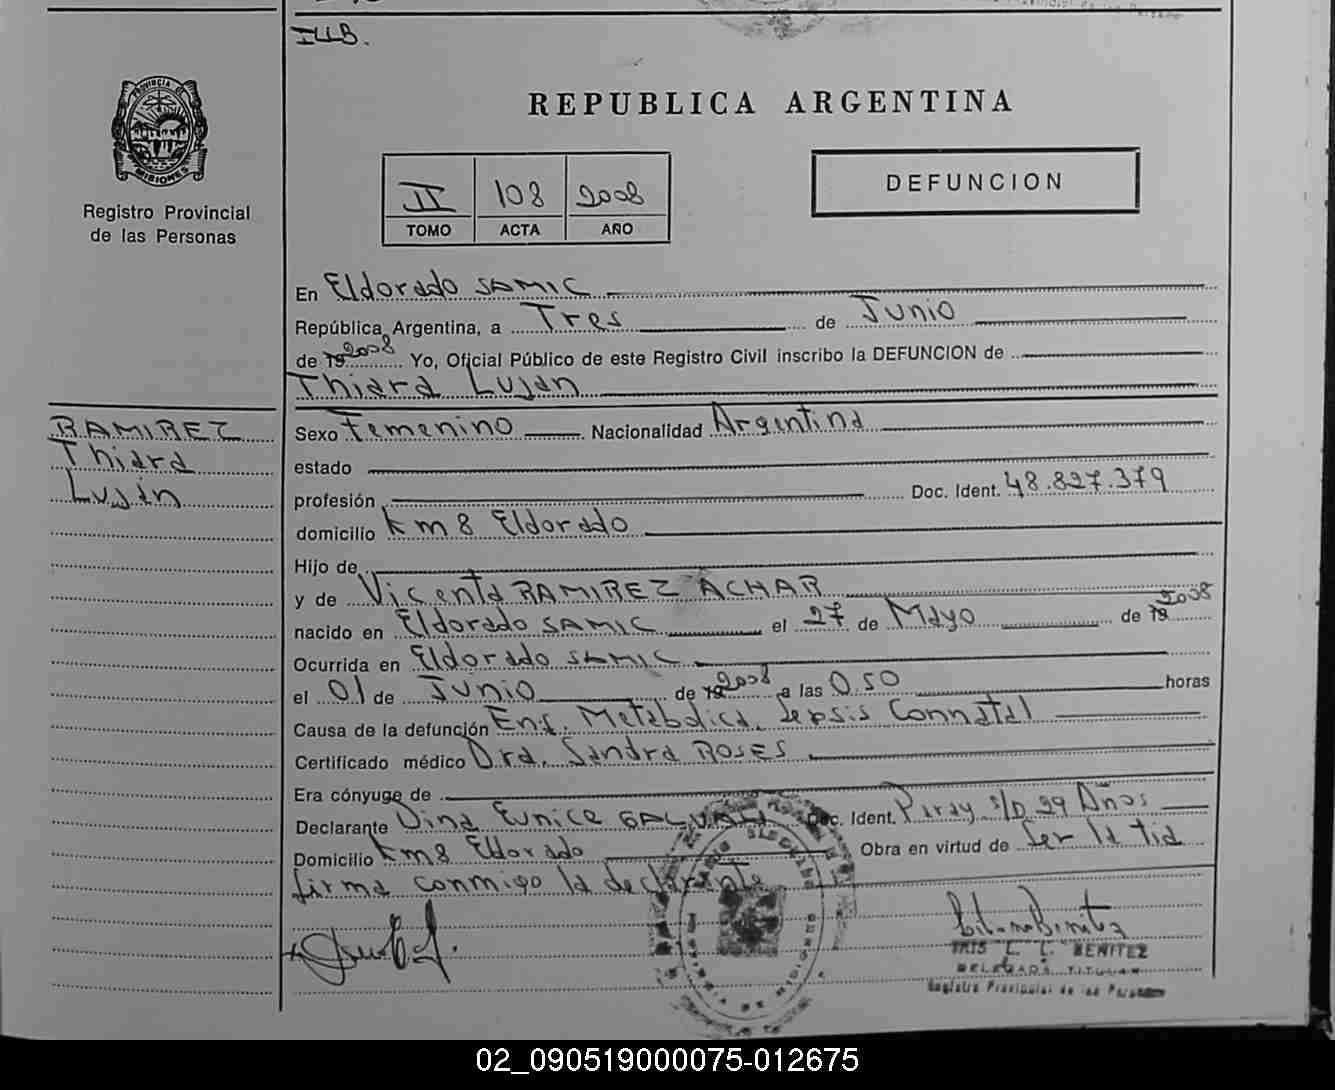 ILLB.
PROVINCIA DE
MISIONES
Registro Provincial
de las Personas
REPUBLICA ARGENTINA
II 108 2008
TOMO ACTA AÑO
DEFUNCION
RAMIREZ
Thiara
Luján
En Eldorado SAMIC
República Argentina, a Tres de Junio
de 19 2008 Yo, Oficial Público de este Registro Civil inscribo la DEFUNCION de
Thiara Lujan
Sexo Femenino Nacionalidad Argentina
estado
profesión Doc. Ident. 48.827.379
domicilio Km 8 Eldorado
Hijo de
y de Vicenta RAMIREZ ACHAR
nacido en Eldorado SAMIC el 27 de Mayo de 19 2008
Ocurrida en Eldorado SAMIC
el 01 de Junio de 19 2008 a las 0.50 horas
Causa de la defunción Enf. Metabolica, sepsis Connatal
Certificado médico Dra. Sandra ROSES
Era cónyuge de
Declarante Dina Eunice Doc. Ident. Paray s/D 29 Años
Domicilio Km 8 Eldorado Obra en virtud de Ser la tia
firma conmigo la declarante
IRIS L. L. BENITEZ
DELEGADA TITULAR
Registro Provincial de las Personas
02_090519000075-012675